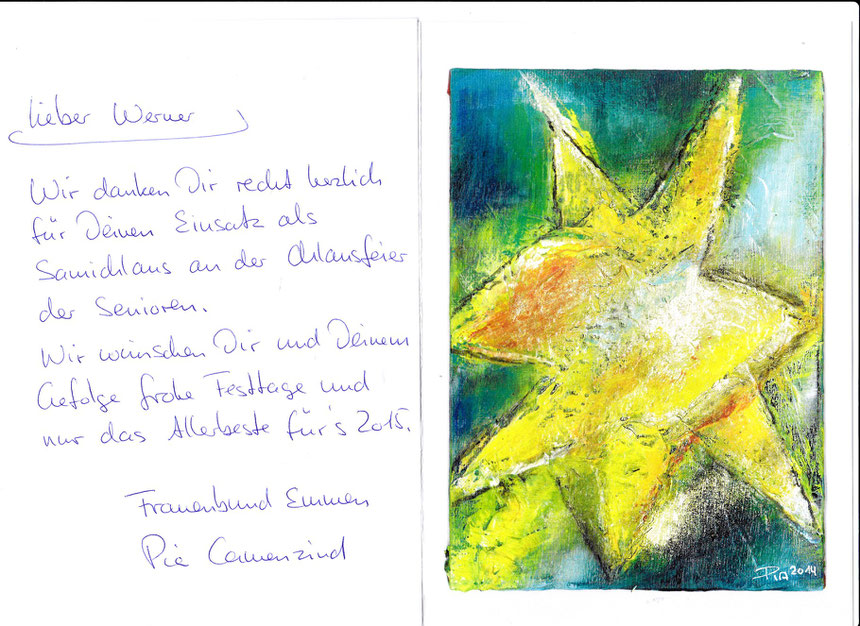 Lieber Werner
Wir danken Dir recht herzlich
für Deinen Einsatz als
Samichlaus an der Chlausfeier
der Senioren.
Wir wünschen Dir und Deinem
Gefolge frohe Festtage und
nur das Allerbeste für's 2015.
Frauenbund Emmen
Pia Camenzind
Pia 2014